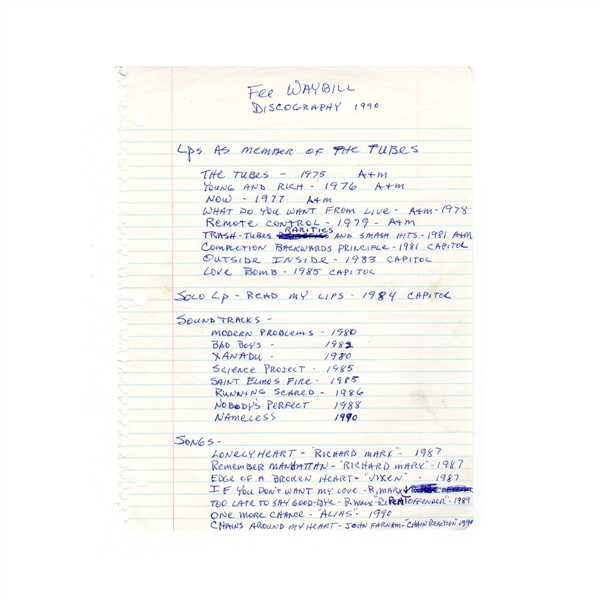 Fee WAYBILL
DISCOGRAPHY 1990
Lps AS MEMBER OF THE TUBES
THE TUBES - 1975 A+M
YOUNG AND RICH - 1976 A+M
NOW - 1977 A+M
WHAT DO YOU WANT FROM LIVE - A+M - 1978
REMOTE CONTROL - 1979 - A+M
TRASH - TUBES RARITIES AND SMASH HITS - 1981 A+M
COMPLECTION BACKWARDS PRINCIPLE - 1981 CAPITOL
OUTSIDE INSIDE - 1983 CAPITOL
LOVE BOMB - 1985 CAPITOL
SOLO Lp - READ MY LIPS - 1984 CAPITOL
SOUNDTRACKS -
MODERN PROBLEMS - 1980
BAD BOYS - 1982
XANADU - 1980
SCIENCE PROJECT - 1985
SAINT ELMOS FIRE - 1985
RUNNING SCARED - 1986
NOBODY'S PERFECT 1988
NAMELESS 1990
SONGS -
LONELY HEART - "RICHARD MARX" - 1987
REMEMBER MANHATTAN - "RICHARD MARX" - 1987
EDGE OF A BROKEN HEART - "VIXEN" - 1987
IF YOU DON'T WANT MY LOVE - R. MARX
TOO LATE TO SAY GOOD-BYE - R. MARX - "REPEAT OFFENDER" - 1989
ONE MORE CHANCE - "ALIAS" - 1990
CHAINS AROUND MY HEART - JOHN FARNAM - "CHAIN REACTION" 1990